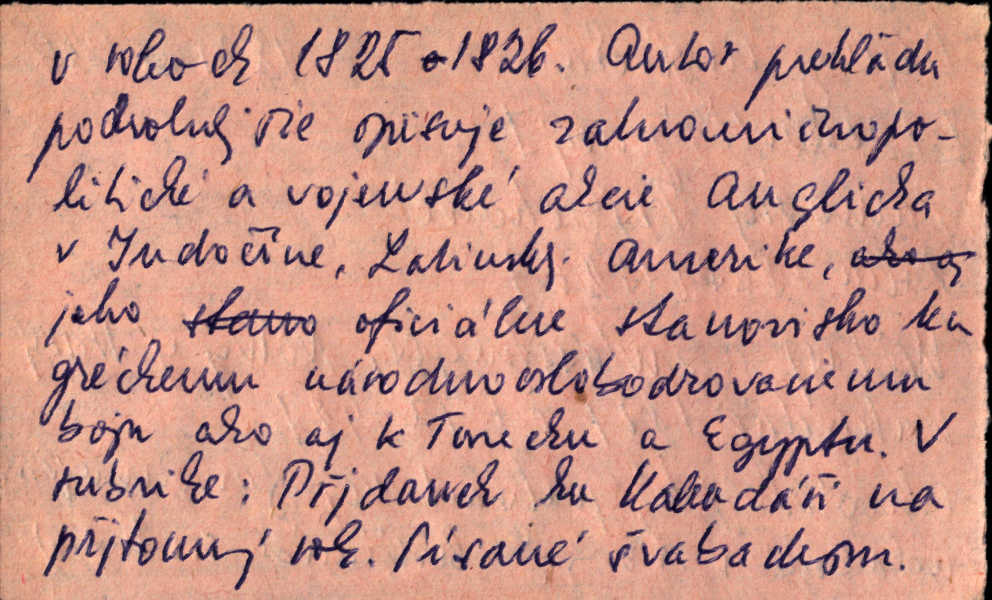 v rokoch 1825 a 1826. Autor prehľadu
podrobnejšie opisuje zahraničnopo-
litické a vojenské akcie Anglicka
v Indočíne, Latinskej Amerike, ako aj
jeho stano oficiálne stanovisko ku
gréckemu národnooslobodzovaciemu
boju ako aj k Turecku a Egyptu. V
rubrike: Přjdawek ku Kalendáři na
přjtomný rok. Písané švabachom.